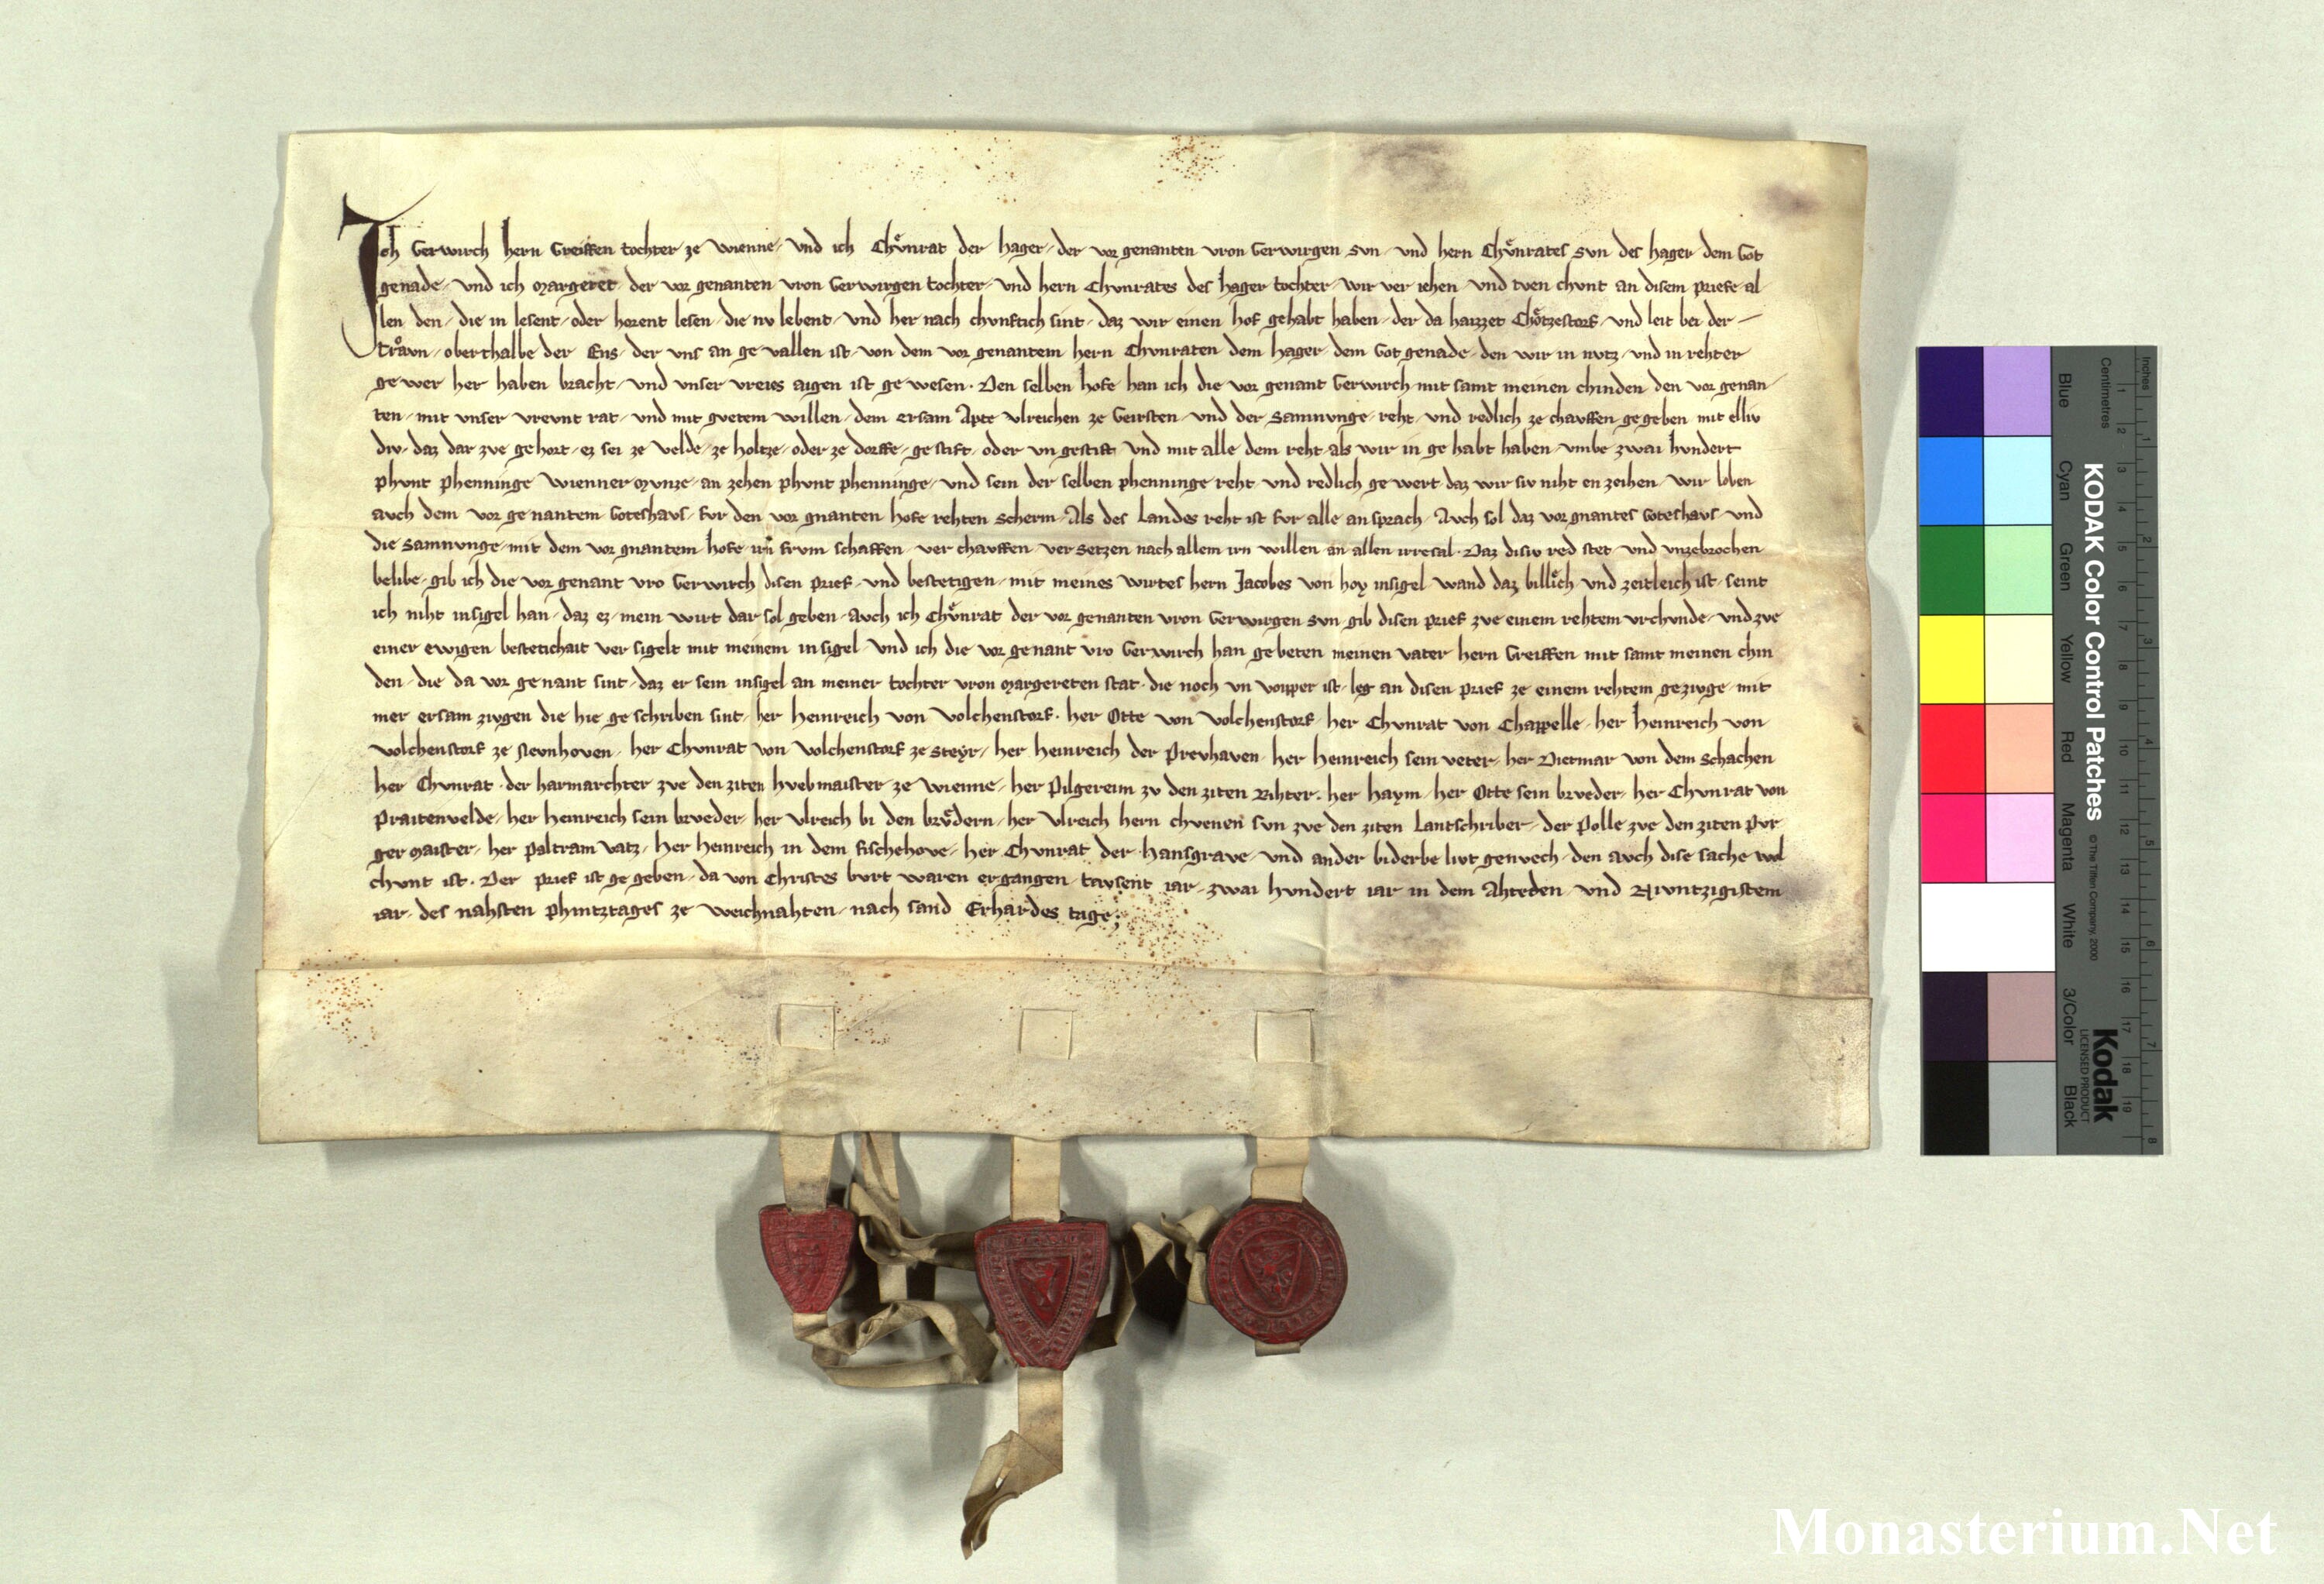 Ich Gerwirch hern Greiffen tochter ze wienne und ich Chuͦnrat der hager der vor genanten vron Gerwirgen svn und hern Chuͦnrates svn des hager dem Got
genade und ich Margeret der vor genanten vron Gerwirgen tochter und hern Chvnrates des hager tochter wir ver iehen und tven chvnt an disem prief al
len den die in lesent oder horent lesen die nv lebent und her nach chvnftich sint daz wir einen hof gehabt haben der da haizzet Choͤtzestorf und leit bei der
Traͤvn oberthalbe der Ens der vns an ge vallen ist von dem vor genantem hern Chvnraten dem hager dem Got genade den wir in nvtz und in rehter
ge wer her haben bracht und unser vreies aigen ist ge wesen. Den selben hofe han ich die vor genant Gerwirch mit samt meinen chinden den vor genan
ten mit unser vrevnt rat und mit gvetem willen dem ersam Apte Vlreichen ze Geirsten und der Samnvnge reht und redlich ze chauffen ge geben mit elliv
div daz dar zve ge hort ez sei ze velde ze holtze oder ze dorffe ge stift oder vn gestift und mit alle dem reht als wir in ge habt haben vmbe zwai hvndert
phvnt phenninge Wienner Mvnze an zehen phvnt phenninge und sein der selben phenninge reht und redlich ge wert daz wir siv niht en zeihen wir loben
avch dem vor ge nantem Goteshavs fvr den vor gnanten hofe rehten Scherm Als des Landes reht ist fvr alle an sprach Avch sol daz vor gnantes Goteshavs und
die Samnvnge mit dem vor gnantem hofe irn frvm schaffen ver chauffen ver setzen nach allem irn willen an allen irresal. Daz disiv red stet und vnzebrochen
belibe gib ich die vor genant vro Gerwirch disen prief und bestetigen mit meines wirtes hern Jacobes von hoy insigel wand daz billich und zeitleich ist seint
ich niht insigel han daz ez mein wirt dar sol geben Avch ich Chuͦnrat der vor genanten vron Gerwirgen svn gib disen prief zve einem rehtem vrchvnde und zve
einer ewigen bestetichait ver sigelt mit meinem in sigel und ich die vor genant vro Gerwirch han ge beten meinen vater hern Greiffen mit samt meinen chin
den die da vor ge nant sint daz er sein insigel an meiner tochter vron Margereten stat die noch vn vogper ist leg an disen prief ze einem rehtem gezivge mit
mer ersam zivgen die hie ge schriben sint her heinreich von Volchenstorf. her Otte von Volchenstorf her Chvnrat von Chappelle her heinreich von
Volchenstorf ze Nevnhoven her Chvnrat von Volchenstorf ze Steyr her heinreich der Prevhaven her heinreich sein veter her Dietmar von dem Schachen
her Chvnrat der harmarchter zve den ziten hvebmaister ze Wienne her Pilgereim zv den ziten Rihter. her haym her Otte sein brveder her Chvnrat von
Praitenvelde her heinreich sein brveder her Vlreich bi den brvͤdern her Vlreich hern chvenen svn zve den ziten Lantschriber der Polle zve den ziten Pvr
ger Maister her Paltram Vatz her heinreich in dem Fischehove her Chvnrat der hansgrave und ander biderbe livt genvech den avch dise sache wol
chvnt ist. Der prief ist ge geben da von Christes bvrt waren ergangen tavsent iar zwai hvndert iar in dem Ahteden und Nivntzigistem
iar des nahsten phintztages ze weichnahten nach sand Erhardes tage
KODAK Color Control Patches © The Tiffen Company, 2000
Kodak
LICENSED PRODUCT
Blue Cyan Green Yellow Red Magenta White 3/Color Black
Centimetres 1 2 3 4 5 6 7 8 9 10 11 12 13 14 15 16 17 18 19
Inches 1 2 3 4 5 6 7 8
Monasterium.Net